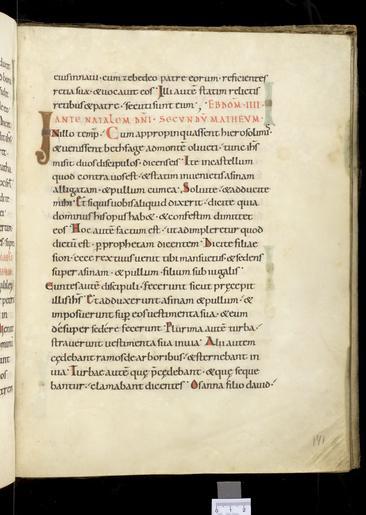 eius in naui · cum zebedeo patre eorum · reficientes
retia sua · & uocauit eos · Illi autē statim relictis
retibus & patre · secuti sunt eum · EBDOM · IIII ·
ANTE NATALEM DNI · SECVNDV MATHEVM ·
IN illo temp̄ · Cum appropinquassent hierosolimis
& uenissent bethfage ad montē oliueti · tunc ihs
misit duos discipulos · dicens eis · Ite in castellum
quod contra uos est · & statim inuenietis asinam
alligatam · & pullum cum ea · Soluite · & adducite
mihi · Et si quis uobis aliquid dixerit · dicite quia
dominus his opus habet · & confestim dimittet
eos · Hoc autē factum est · ut adimpleretur quod
dictū est · p̱ prophetam dicentem · Dicite filiae
sion · ecce rex tuus uenit tibi mansuetus · & sedens
super asinam · & pullum · filium subiugalis ·
Euntes autē discipuli · fecerunt sicut pręcepit
illis ihs · Et adduxerunt asinam & pullum · &
imposuerunt sup eos uestimenta sua · & eum
desuper sedere fecerunt · Plurima autē turba ·
strauerunt uestimenta sua in uia · Alii autem
cędebant ramos de arboribus · & sternebant in
uia · Turbae autē quę p̄cędebant · & quę seque
bantur · clamabant dicentes · Osanna filio dauid ·
141